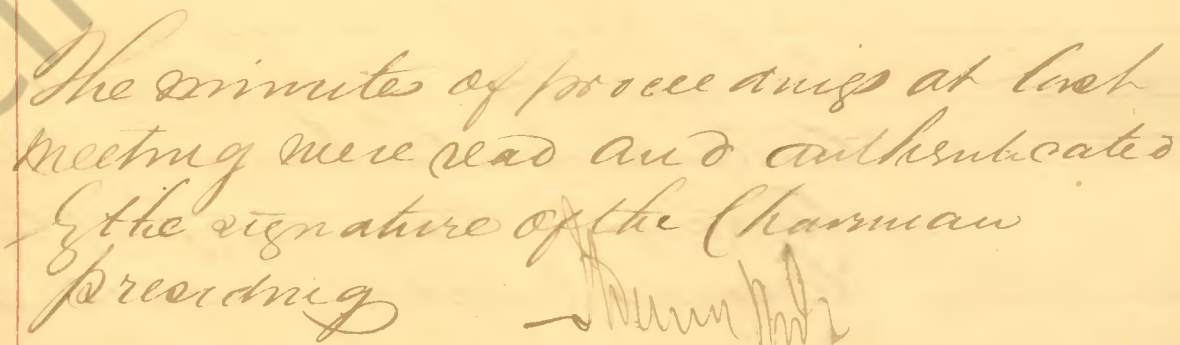 The minutes of proceedings at last
meeting were read and authenticated
by the signature of the Chairman
presiding